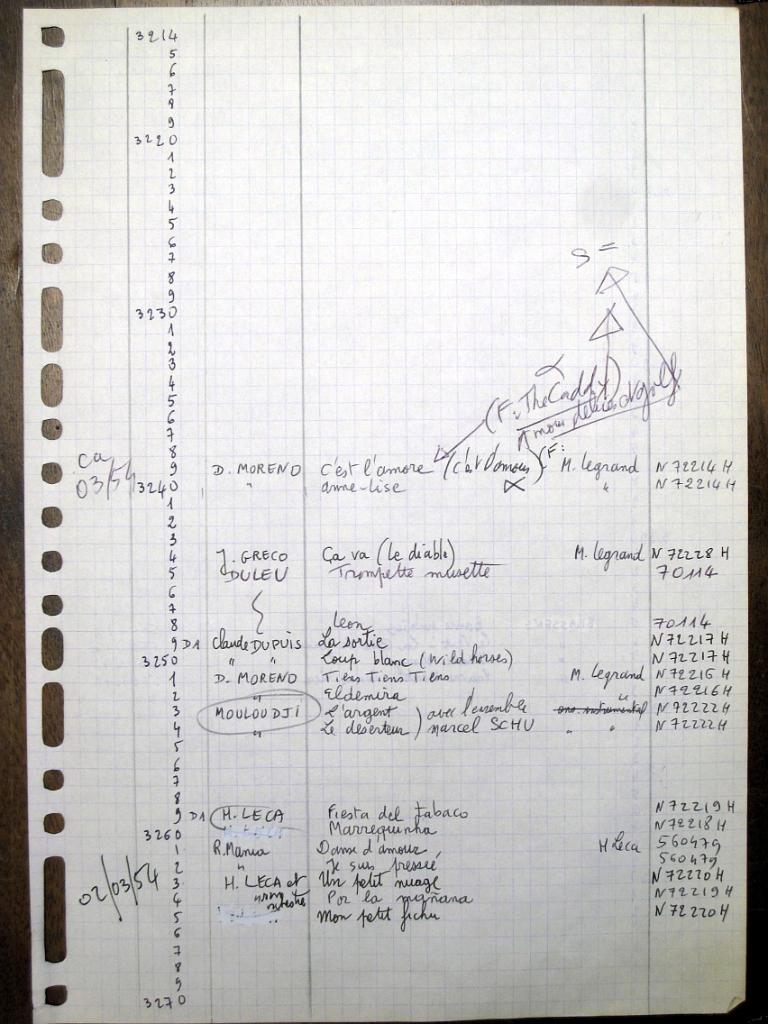 3214
5
6
7
8
9
3220
1
2
3
4
5
6
7
8
9
3230
1
2
3
4
5
6
7
8
S =
(F: The Caddy)
Amour délices et golf
ca 03/54
9 D. MORENO C'est l'amore (c'est d'amour) (F: M. Legrand N 72214 H
3240 " anne-lise " N 72214 H
1
2
3
4 J. GRECO Ça va (le diable) M. Legrand N 72228 H
5 DULEU Trompette musette 70114
6
7
8 Leon 70114
9 D1 Claude DUPUIS La sortie N 72217 H
3250 " " Loup blanc (Wild horses) N 72217 H
1 D. MORENO Tiens Tiens Tiens M. Legrand N 72216 H
2 " Eldemira " N 72216 H
3 MOULOUDJI L'argent ) avec l'ensemble orc. instrumental N 72222 H
4 " Le déserteur ) Marcel SCHU " " N 72222 H
5
6
7
8
9 D1 H. LECA Fiesta del tabaco N 72219 H
3260 Marrequinha N 72218 H
1 R. Mania Danse d'amour H Leca 560479
2 " Je suis pressé 560479
02/03/54
3 H. LECA et Un petit nuage N 72220 H
4 Por la mañana N 72219 H
5 Mon petit fichu N 72220 H
6
7
8
9
3270